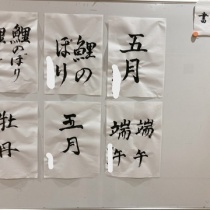 書
五月
鯉の
ぼり
鯉のぼり
端午
端午
五月
牡丹